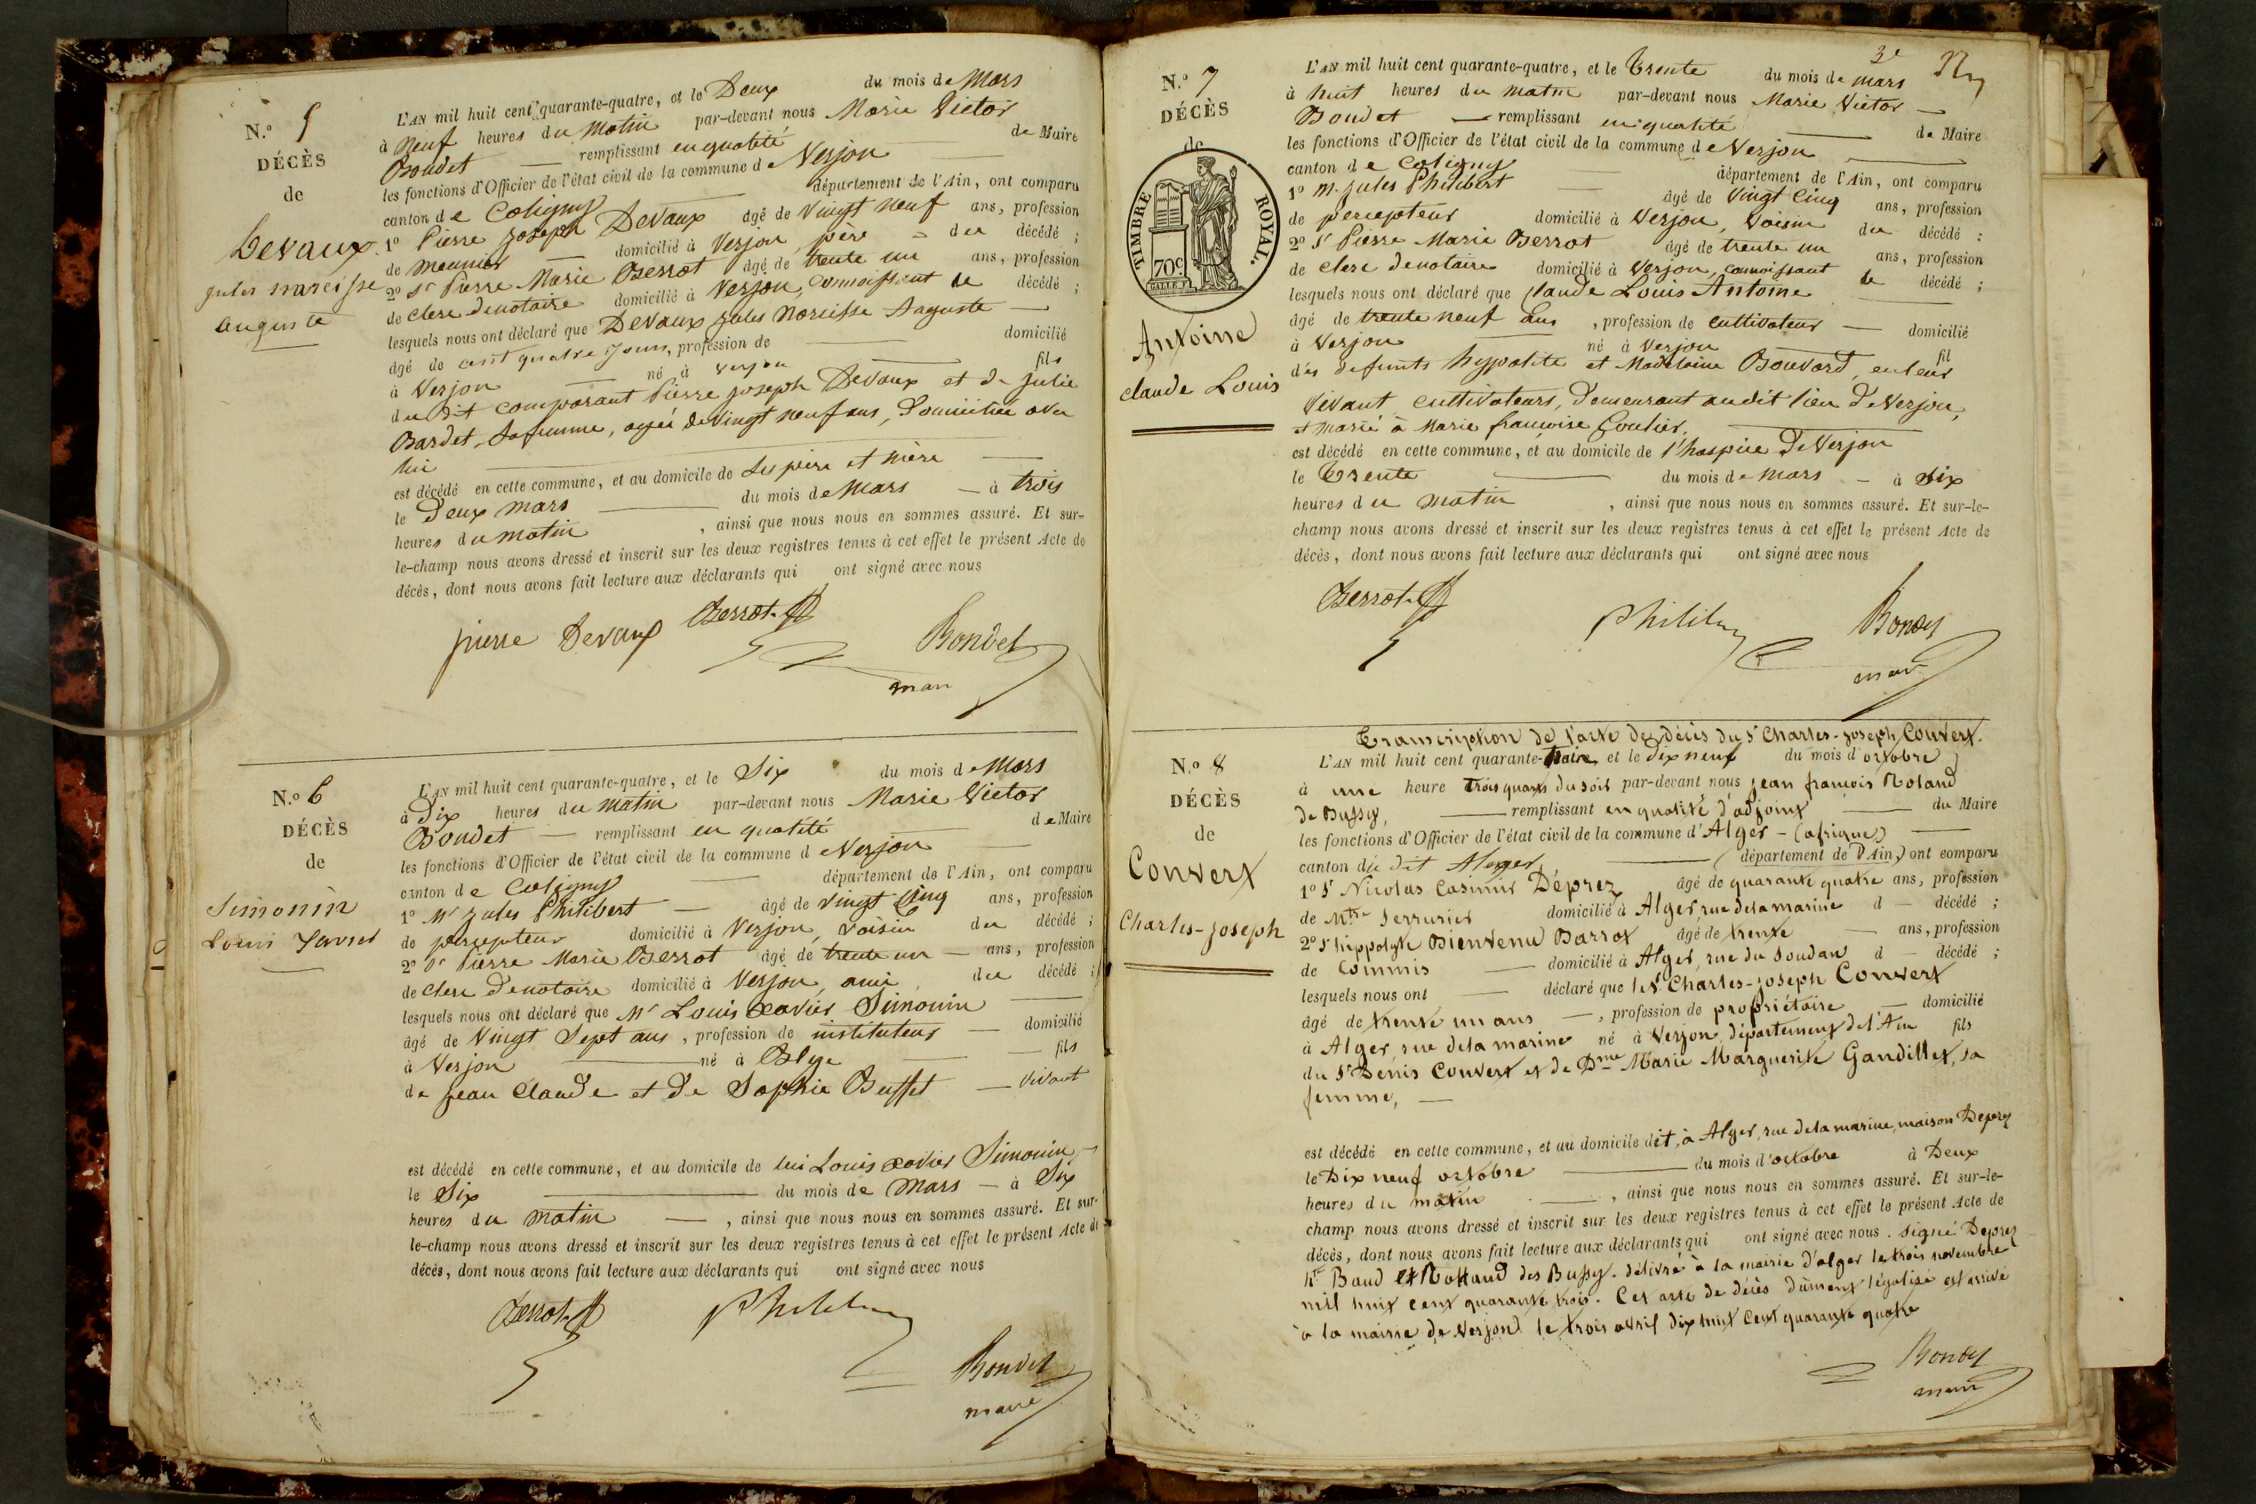 N.º 5
DÉCÈS
de
Devaux
jules narcisse
auguste
L'AN mil huit cent quarante-quatre, et le Deux du mois de Mars
à Neuf heures du Matin par-devant nous Marie Victor
Bondet — remplissant en qualité de Maire
les fonctions d'Officier de l'état civil de la commune de Verjon
canton de Coligny département de l'Ain, ont comparu
1º Pierre joseph Devaux âgé de Vingt neuf ans, profession
de meunier domicilié à Verjon, père du décédé ;
2º Sr Pierre Marie Berrot âgé de trente un ans, profession
de clerc de notaire domicilié à Verjon, connoissant le décédé ;
lesquels nous ont déclaré que Devaux jules Narcisse Auguste —
âgé de cent quatre jours, profession de — domicilié
à Verjon — né à Verjon — fils
du dit comparant Pierre joseph Devaux et de Julie
Bardet, sa femme, agée de vingt neuf ans, domiciliée avec
lui
est décédé en cette commune, et au domicile de ses père et mère —
le Deux mars — du mois de Mars — à trois
heures du matin, ainsi que nous nous en sommes assuré. Et sur-
le-champ nous avons dressé et inscrit sur les deux registres tenus à cet effet le présent Acte de
décès, dont nous avons fait lecture aux déclarants qui ont signé avec nous
pierre Devaux Berrot Bondet
N.º 6
DÉCÈS
de
Simonin
Louis
L'AN mil huit cent quarante-quatre, et le Six du mois de Mars
à Dix heures du matin par-devant nous Marie Victor
Bondet — remplissant en qualité de Maire
les fonctions d'Officier de l'état civil de la commune de Verjon
canton de Coligny département de l'Ain, ont comparu
1º Mr jules Philibert — âgé de vingt Cinq ans, profession
de percepteur domicilié à Verjon, voisin du décédé ;
2º Sr Pierre Marie Berrot âgé de trente un — ans, profession
de clerc de notaire domicilié à Verjon, ami du décédé ;
lesquels nous ont déclaré que Mr Louis xavier Simonin —
âgé de Vingt Sept ans, profession de instituteur — domicilié
à Verjon — né à — fils
de jean Claude et de Sophie Buffet — vivant
est décédé en cette commune, et au domicile de lui Louis xavier Simonin —
le Six — du mois de Mars — à Six
heures du matin —, ainsi que nous nous en sommes assuré. Et sur-
le-champ nous avons dressé et inscrit sur les deux registres tenus à cet effet le présent Acte de
décès, dont nous avons fait lecture aux déclarants qui ont signé avec nous
Berrot Bondet
maire
3e
N.º 7
DÉCÈS
de
TIMBRE ROYAL.
70c
Antoine
claude Louis
L'AN mil huit cent quarante-quatre, et le Trente du mois de mars
à huit heures du matin par-devant nous Marie Victor —
Bondet — remplissant en qualité — de Maire
les fonctions d'Officier de l'état civil de la commune de Verjon
canton de Coligny — département de l'Ain, ont comparu
1º M. jules Philibert — âgé de vingt Cinq ans, profession
de percepteur domicilié à Verjon, voisin du décédé ;
2º Sr Pierre Marie Berrot âgé de trente un ans, profession
de clerc de notaire domicilié à Verjon, connoissant le décédé ;
lesquels nous ont déclaré que Claude Louis Antoine —
âgé de trente neuf ans, profession de cultivateur — domicilié
à Verjon — né à Verjon fil
des defunts hyppolite et Madelaine Bouvard, en leur
vivant cultivateurs, demeurant audit lieu de Verjon,
et marié à Marie françoise
est décédé en cette commune, et au domicile de l'hospice de Verjon
le Trente — du mois de mars — à Six
heures du matin, ainsi que nous nous en sommes assuré. Et sur-le-
champ nous avons dressé et inscrit sur les deux registres tenus à cet effet le présent Acte de
décès, dont nous avons fait lecture aux déclarants qui ont signé avec nous
Berrot Bondet
N.º 8
DÉCÈS
de
Convert
Charles-joseph
Transcription de l'acte de décès du Sr Charles-joseph Convert.
L'AN mil huit cent quarante-trois, et le dix neuf du mois d'octobre
à une heure trois quarts du soir par-devant nous jean francois Roland
de Bussy, — remplissant en qualité d'adjoint — du Maire
les fonctions d'Officier de l'état civil de la commune d'Alger — (afrique) —
canton du dit Alger — (département de l'Ain,) ont comparu
1º Sr Nicolas Casimir Déprez âgé de quarante quatre ans, profession
de Mtre serrurier domicilié à Alger, rue de la marine d — décédé ;
2º Sr hippolyte Bienvenu Barrot âgé de trente — ans, profession
de Commis — domicilié à Alger, rue du soudan d — décédé ;
lesquels nous ont — déclaré que le Sr Charles-joseph Convert
âgé de trente un ans —, profession de propriétaire — domicilié
à Alger, rue de la marine né à Verjon, département de l'Ain fils
du Sr Denis Convert et de Dme Marie Marguerite Gandillet, sa
femme, —
est décédé en cette commune, et au domicile dit, à Alger, rue de la marine, maison Deprez
le Dix neuf octobre — du mois d'octobre à Deux
heures du matin —, ainsi que nous nous en sommes assuré. Et sur-le-
champ nous avons dressé et inscrit sur les deux registres tenus à cet effet le présent Acte de
décès, dont nous avons fait lecture aux déclarants qui ont signé avec nous. signé Deprez
Baud et Rolland des Bussy. délivré à la mairie d'alger le trois novembre
mil huit cent quarante trois. Cet acte de décès dûment légalisé est arrivé
à la mairie de Verjon le trois avril dix huit cent quarante quatre
Bondet